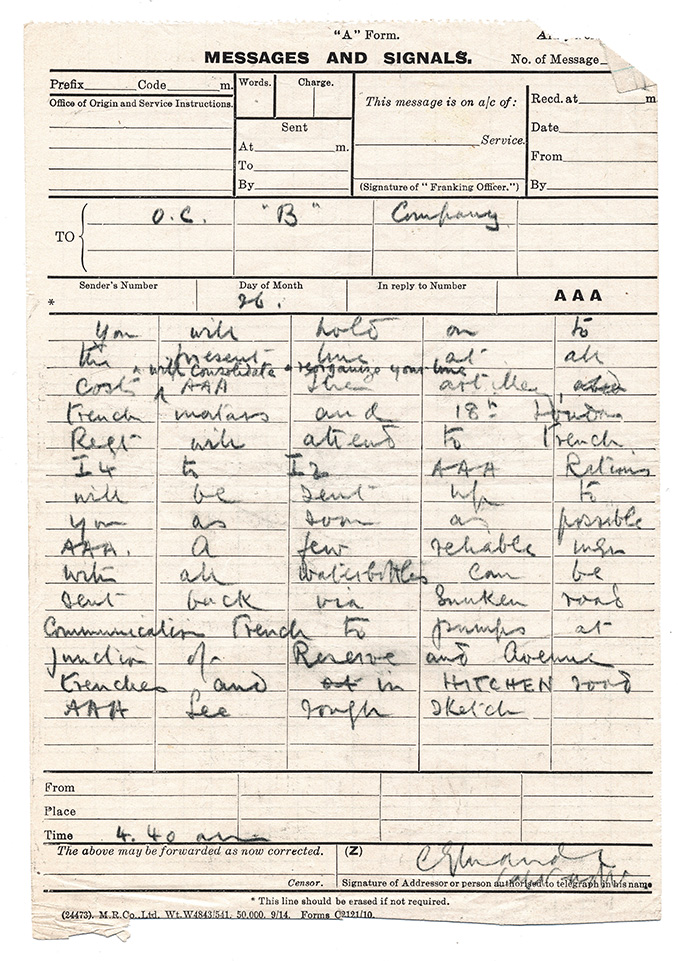 "A" Form.
MESSAGES AND SIGNALS. No. of Message
Prefix Code m. Words. Charge. This message is on a/c of: Recd. at m
Office of Origin and Service Instructions.
Sent Date
At m. Service.
To From
By (Signature of "Franking Officer.") By
TO O.C. "B" Company
Sender's Number Day of Month In reply to Number AAA
* 26.
You will hold on to
the present line at all
& will consolidate & reorganize your line
costs AAA The artillery
trench mortars and 18th London
Regt will attend to trench
I4 to I2 AAA Rations
will be sent up to
you as soon as possible
AAA. A few reliable men
with all waterbottles can be
sent back via Sunken road
Communication Trench to pumps at
junction of Reserve and Avenue
trenches and in HITCHEN road
AAA See rough sketch
From
Place
Time 4.40 am
The above may be forwarded as now corrected. (Z)
Censor. Signature of Addressor or person authorised to telegraph in his name
* This line should be erased if not required.
(24473). M.R.Co.,Ltd. Wt.W4843/541. 50,000. 9/14. Forms C2121/10.